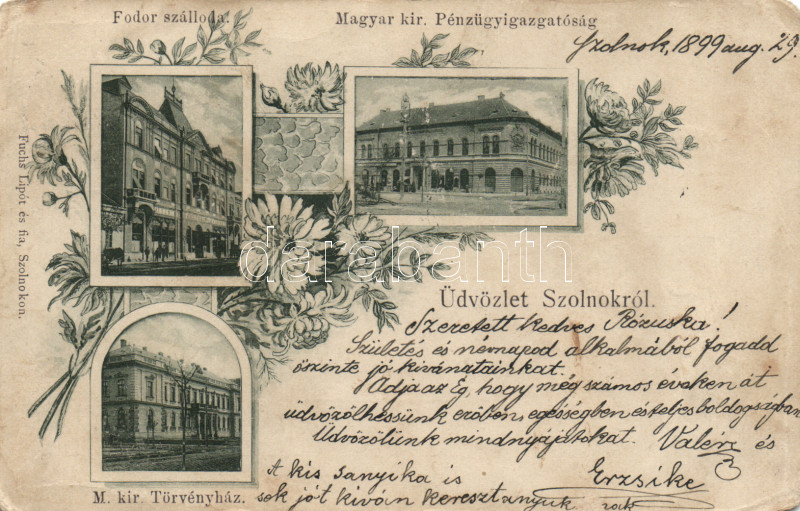 Fodor szálloda.
Magyar kir. Pénzügyigazgatóság
Szolnok, 1899 aug. 29.
Fuchs Lipót és fia, Szolnokon.
darabanth
Üdvözlet Szolnokról.
Szeretett kedves Rózuska!
Születés és névnapod alkalmából fogadd
őszinte jó kivánatainkat.
Adja az Ég, hogy még számos éveken át
üdvözölhessünk erőben, egéségben és teljes boldogságban
Üdvözölünk mindnyájatokat. Valér és
Erzsike
A kis Sanyika is
sok jót kiván keresztanyuk
M. kir. Törvényház.